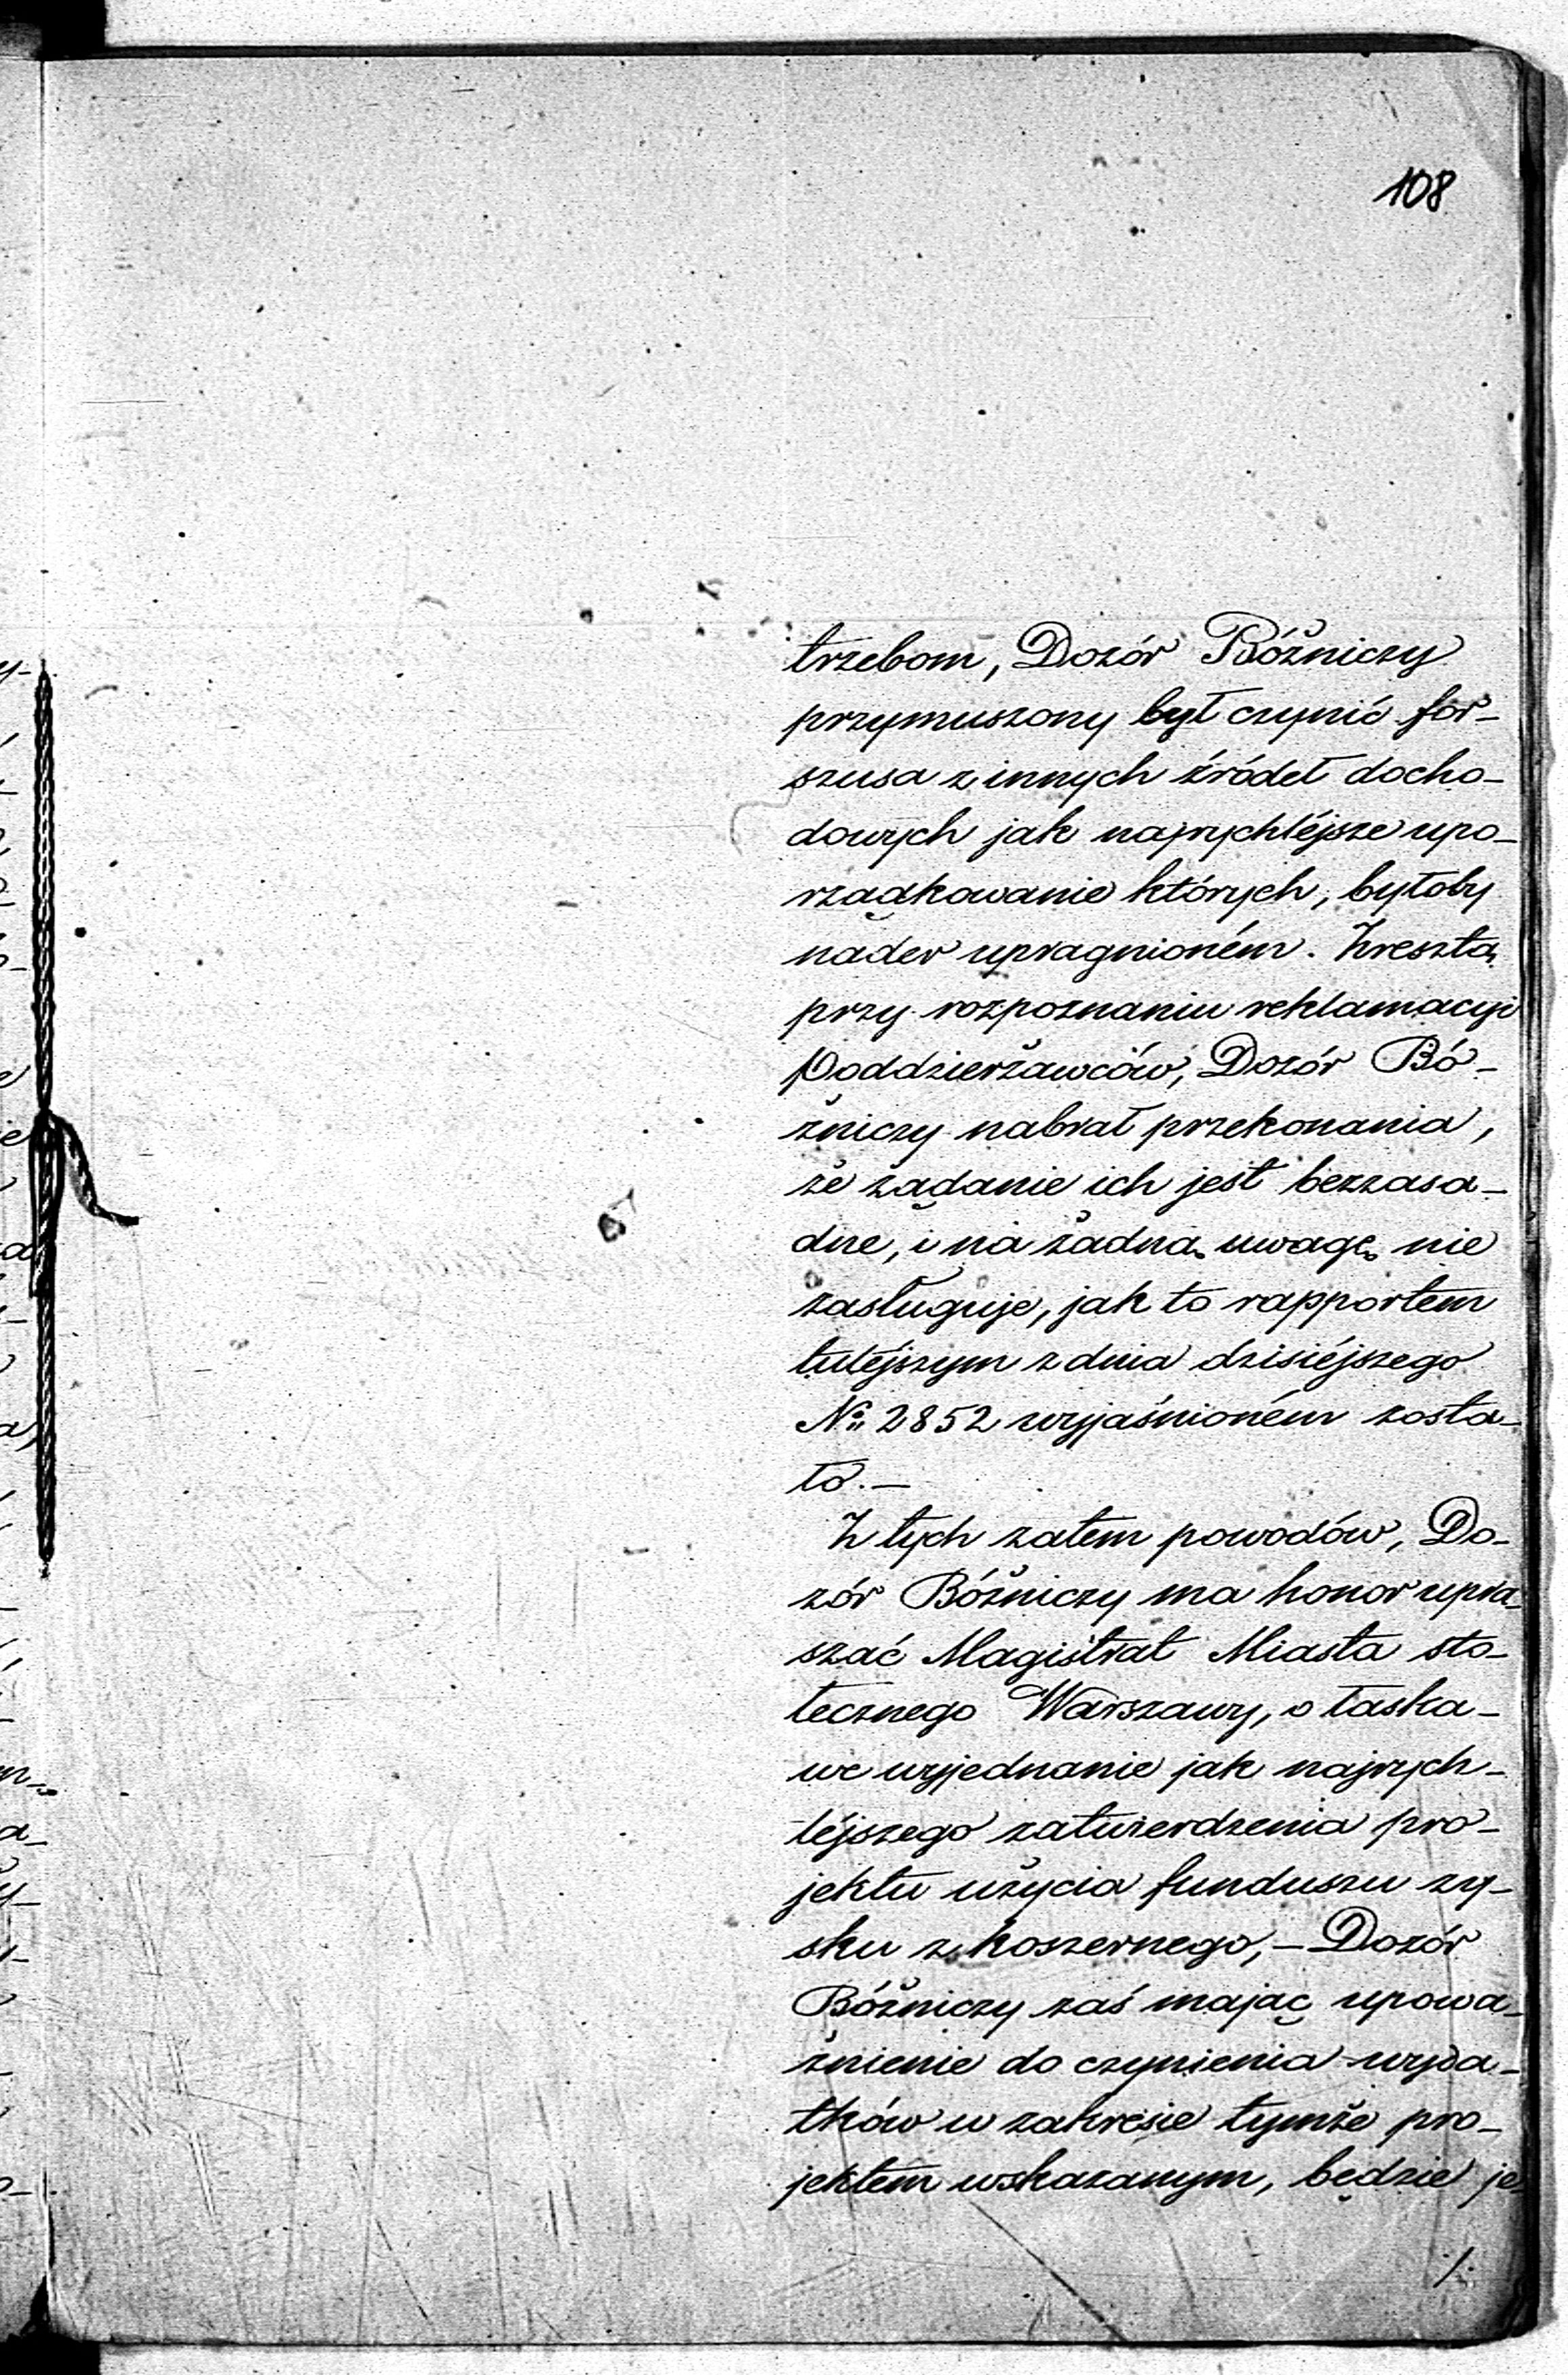 108
trzebom, Dozór Bóżniczy
przymuszony był czynić for-
szusa z innych źródeł docho-
dowych jak najrychléjsze upo-
rządkowanie których, byłoby
nader upragnioném. Zresztą
przy rozpoznaniu reklamacyi
Poddzierżawców, Dozór Bó-
żniczy nabrał przekonania,
że żądanie ich jest bezzasa-
dne, i na żadną uwagę nie
zasługuje, jak to rapportem
tutéjszym z dnia dzisiéjszego
No 2852 wyjaśnioném zosta-
ło.—
Z tych zatem powodów, Do-
zór Bóżniczy ma honor upra-
szać Magistrat Miasta sto-
łecznego Warszawy, o łaska-
we wyjednanie jak najrych-
léjszego zatwierdzenia pro-
jektu użycia funduszu zy-
sku z koszernego,— Dozór
Bóżniczy zaś mając upowa-
żnienie do czynienia wyda-
tków w zakresie tymże pro-
jektem wskazanym, będzie je-
./.